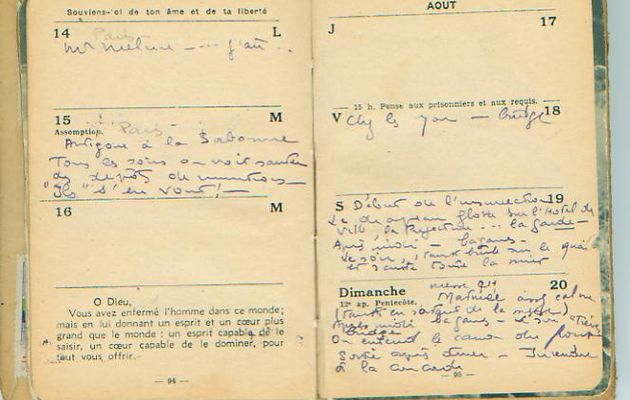 Souviens-toi de ton âme et de ta liberté
14 L
Paris
Mr
15 M
Assomption. Paris
Antigone à la Sorbonne
Tous les soirs on voit sauter
des dépôts de munitions
"Ils" s'en vont! —
16 M
O Dieu,
Vous avez enfermé l'homme dans ce monde;
mais en lui donnant un esprit et un cœur plus
grand que le monde : un esprit capable de le
saisir, un cœur capable de le dominer, pour
tout vous offrir.
— 94 —
AOUT
J 17
15 h. Pense aux prisonniers et aux requis.
V 18
Chez les — bridge
S 19
Début de l'insurrection
Le drapeau flotte sur l'Hôtel de
Ville la Préfecture ... la garde —
Après midi — bagarres —
Le soir, 1 tank brûle sur le quai
et saute toute la nuit
Dimanche 20
12e ap. Pentecôte.
messe
Matinée assez calme
(tank en sortant de la messe)
Après midi bagarres — le soir "Trêve"
Bridge
On entend le canon du
Sortie après dîner — Incendie
à la
— 95 —